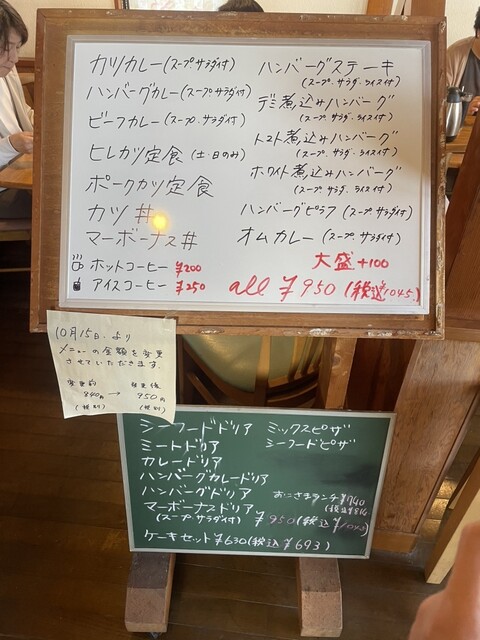 カツカレー(スープ.サラダ付)
ハンバーグカレー(スープ.サラダ付)
ビーフカレー(スープ.サラダ付)
ヒレカツ定食(土.日のみ)
ポークカツ定食
カツ丼
マーボーナス丼
ホットコーヒー ¥200
アイスコーヒー ¥250
ハンバーグステーキ
(スープ.サラダ.ライス付)
デミ煮込みハンバーグ
(スープ.サラダ.ライス付)
トマト煮込みハンバーグ
(スープ.サラダ.ライス付)
ホワイト煮込みハンバーグ
(スープ.サラダ.ライス付)
ハンバーグピラフ(スープ.サラダ付)
オムカレー(スープ.サラダ付)
大盛+100
all ¥950(税込1045)
10月15日.より
メニューの金額を変更
させていただきます.
変更前 変更後
840円 → 950円
(税別) (税別)
シーフードドリア
ミートドリア
カレードリア
ハンバーグカレードリア
ハンバーグドリア
マーボーナスドリア
(スープ.サラダ付) ¥950(税込¥1045)
ケーキセット¥630(税込¥693)
ミックスピザ
シーフードピザ
おこさまランチ¥740
(税込¥814)